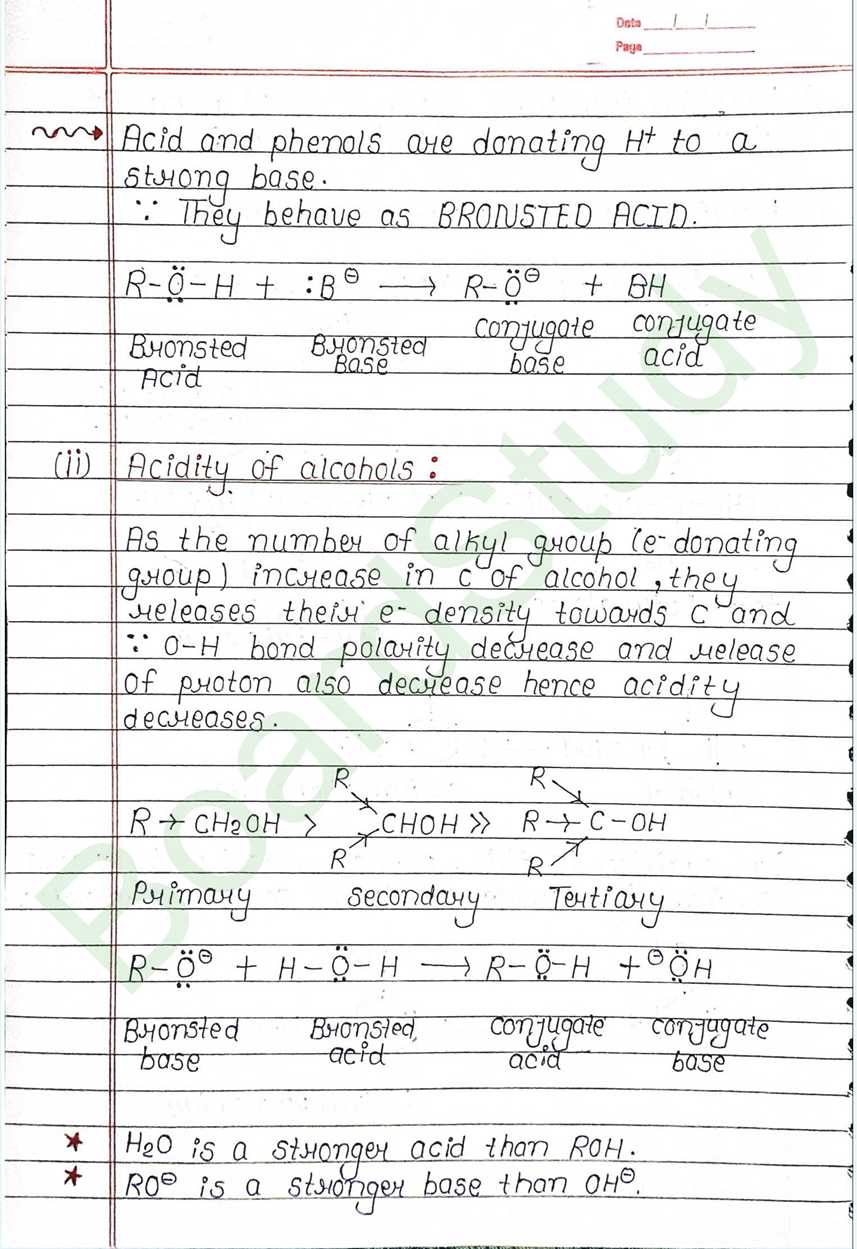 Date / /
Page
Acid and phenols are donating H+ to a
strong base.
∵ They behave as BRONSTED ACID.
R-Ö-H + :B⊖ ⟶ R-Ö⊖ + BH
Bronsted Acid Bronsted Base conjugate base conjugate acid
(ii) Acidity of alcohols :
As the number of alkyl group (e- donating
group) increase in C of alcohol, they
releases their e- density towards C and
∵ O-H bond polarity decrease and release
of proton also decrease hence acidity
decreases.
R R
R → CH2OH > CHOH >> R → C-OH
R R
Primary secondary Tertiary
R-Ö⊖ + H-Ö-H ⟶ R-Ö-H + ⊖ÖH
Bronsted base Bronsted acid conjugate acid conjugate base
★ H2O is a stronger acid than ROH.
★ RO⊖ is a stronger base than OH⊖.
BoardStudy